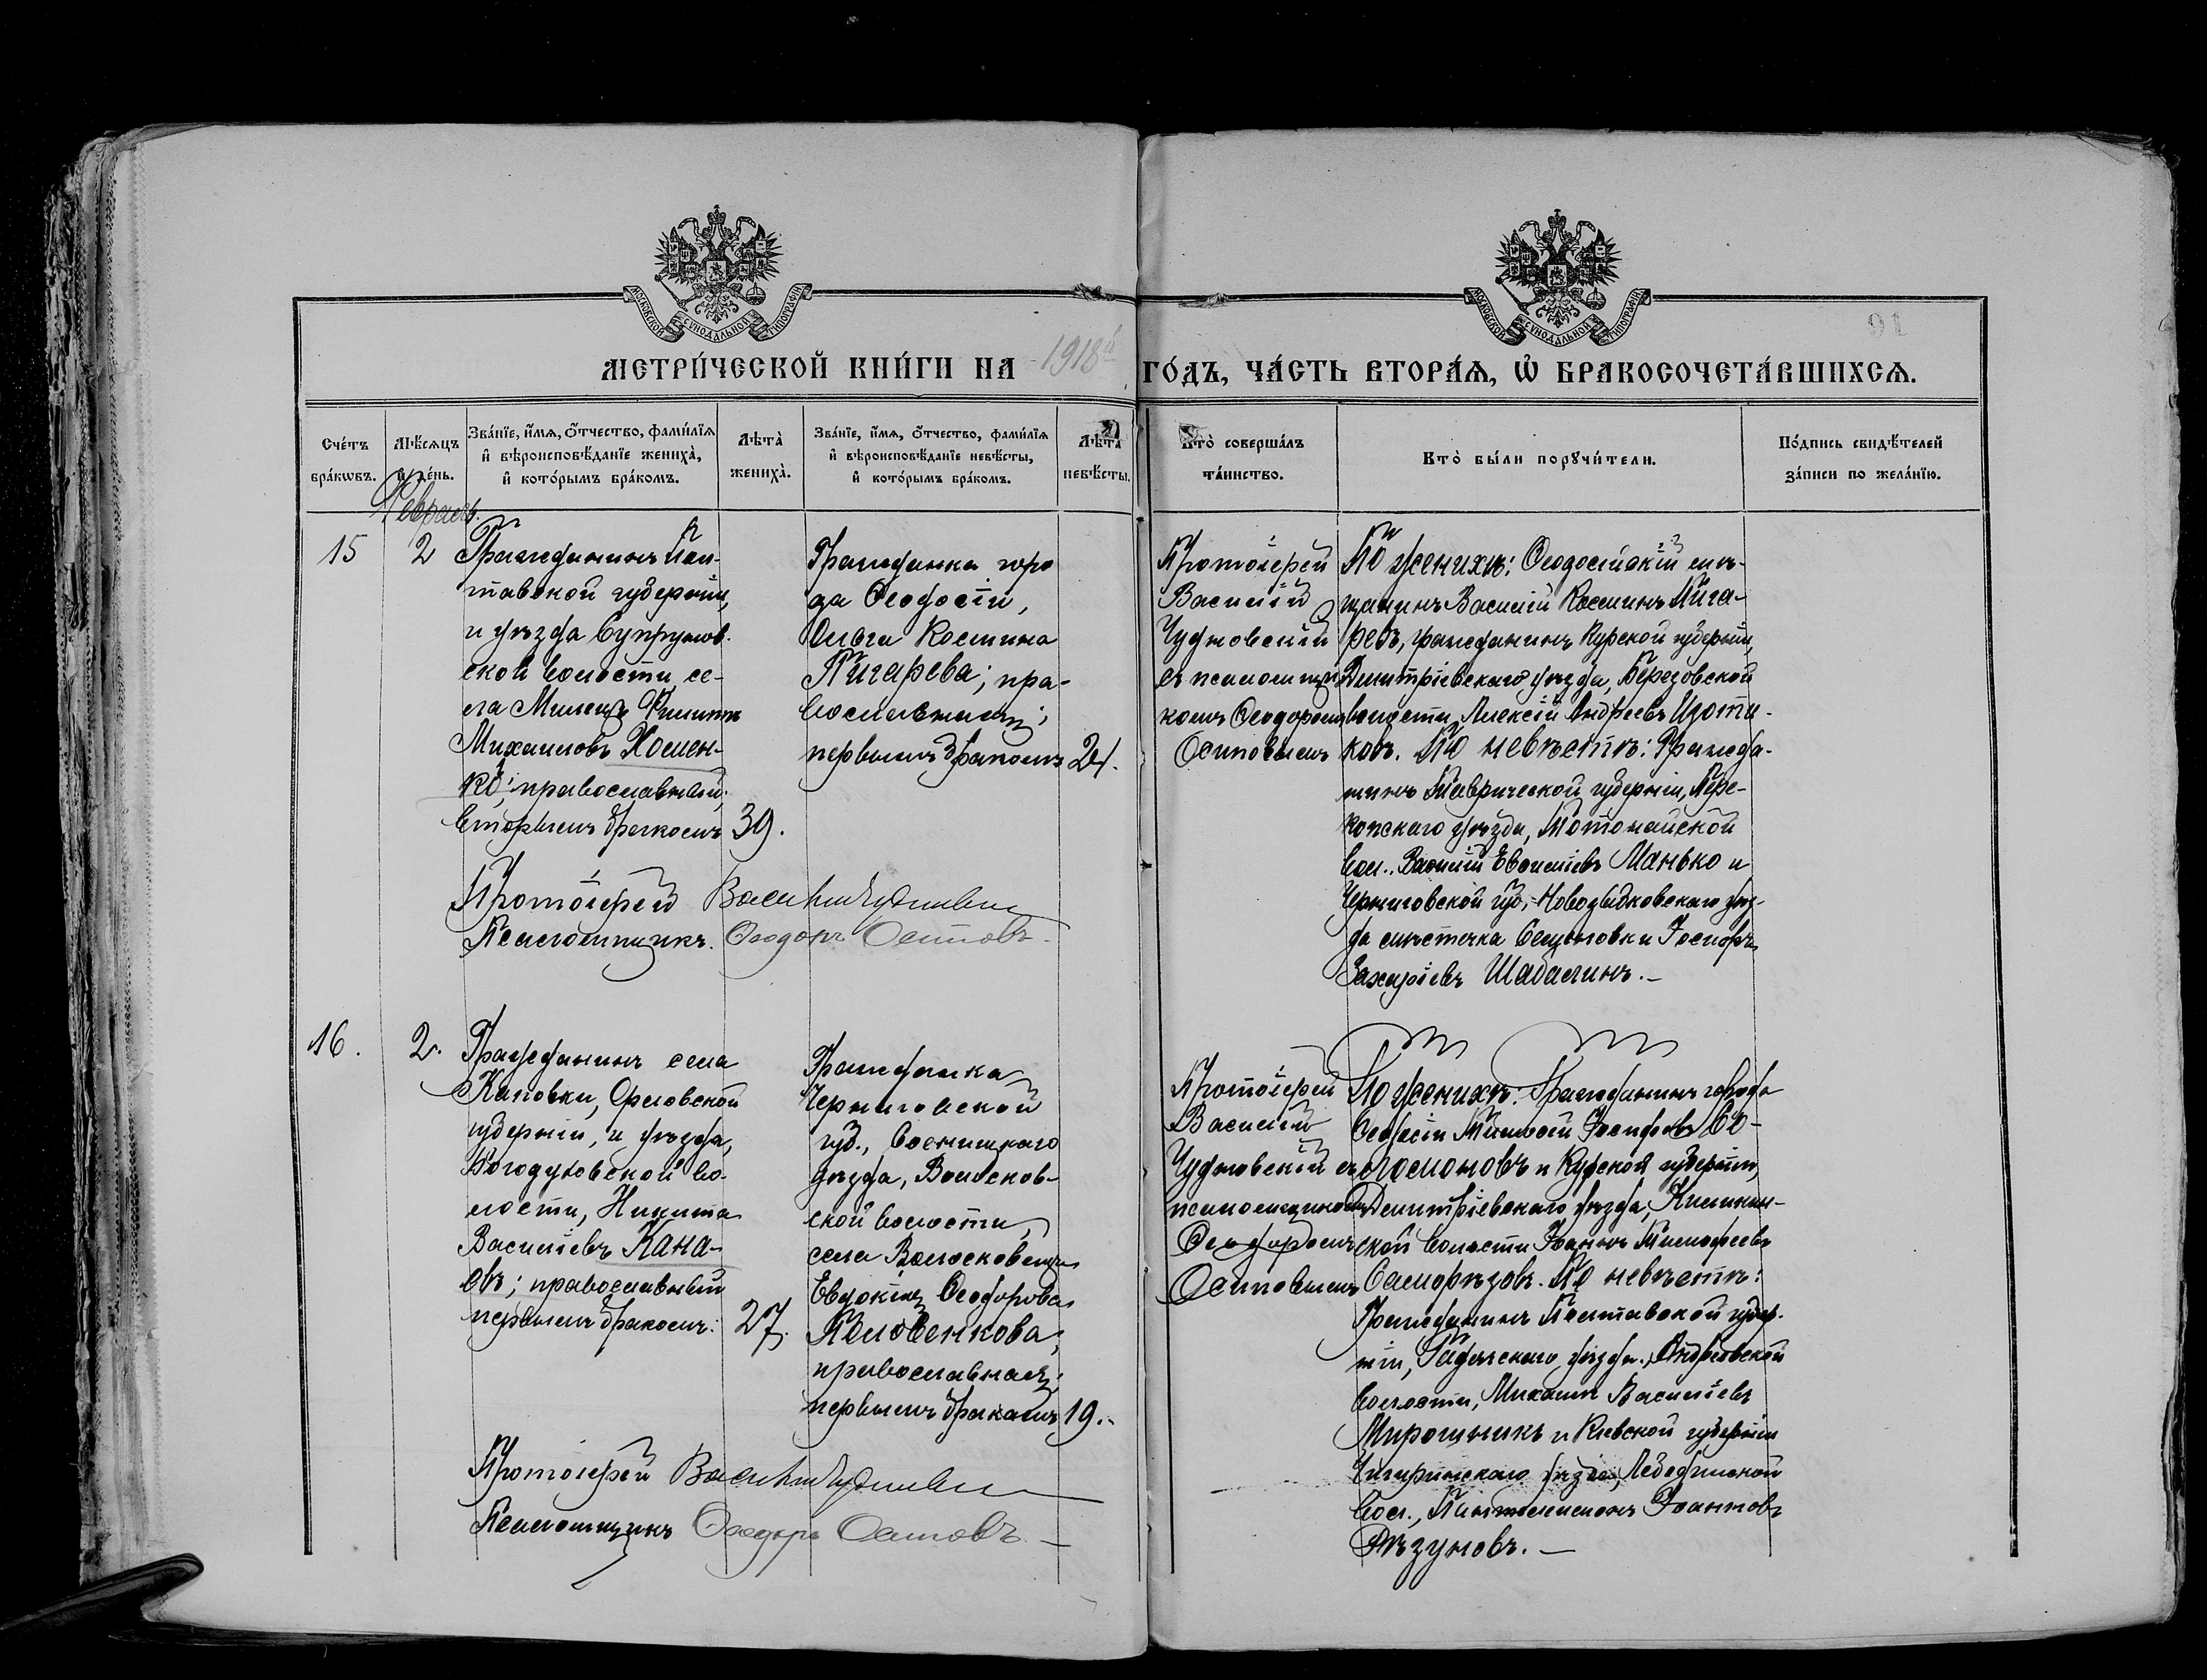 МОСКОВСКОЙ СѴНОДАЛЬНОЙ ТИПОГРАФІИ
МОСКОВСКОЙ СѴНОДАЛЬНОЙ ТИПОГРАФІИ
91
МЕТРИ́ЧЕСКОЙ КНИ́ГИ НА 1918й ГО́ДЪ, ЧА́СТЬ ВТОРА́Я, Ѡ БРАКОСОЧЕТА́ВШИХСѦ.
Сче́тъ бра́кѡвъ.
Мѣ́сѧцъ и҆ де́нь.
Зва́нїе, и҆́мѧ, ѻ҆́тчество, фами́лїѧ и҆ вѣроисповѣ́данїе жениха̀, и҆ кото́рымъ бра́комъ.
Лѣта̀ жениха̀.
Зва́нїе, и҆́мѧ, ѻ҆́тчество, фами́лїѧ и҆ вѣроисповѣ́данїе невѣ́сты, и҆ кото́рымъ бра́комъ.
Лѣта̀ невѣ́сты.
Кто̀ соверша́лъ та́инство.
Кто̀ бы́ли порꙋчи́тели.
По́дпись свидѣ́телей за́писи по жела́нїю.
Февраль.
15
2
Гражданинъ Пол-
тавской губерніи,
и уѣзда Супрунов-
ской волости се-
ла Мильцы Филиппъ
Михаиловъ Хомен-
ко; православный;
вторымъ бракомъ
39.
Гражданка горо
да Ѳеодосіи,
Ольга Космина
Пигарева; пра-
вославная;
первымъ бракомъ
24.
Протоіерей
Василій
Чудновскій
съ псаломщи
комъ Ѳеодоромъ
Осиповымъ
По женихѣ: Ѳеодосійскій мѣ-
щанинъ Василій Косминъ Пига-
ревъ, гражданинъ Курской губерніи,
Дмитріевскаго уѣзда, Березовской
волости Алексій Андреевъ Изоти-
ковъ. По невѣстѣ: Гражда-
нинъ Таврической губерніи, Пере-
копскаго уѣзда,
вол., Василій Манько и
Черниговской губ., Новозыбковскаго уѣз-
да мѣстечка Семеновки
Захаріевъ Шабалинъ.
Протоіерей Василій Чудновскій
Псаломщикъ Ѳеодоръ Осиповъ
16.
2.
Гражданинъ села
Кановки, Орловской
губерніи, и уѣзда,
Богодуховской во-
лости, Никита
Василіевъ Кана-
евъ; православный
первымъ бракомъ:
27.
Гражданка
Черниговской
губ., Сосницкаго
уѣзда, Волосков-
ской волости,
села Волосковецъ
Евдокія Ѳеодорова
православная;
первымъ бракомъ
19.
Протоіерей
Василій
Чудновскій съ
псаломщикомъ
Ѳеодоромъ
Осиповымъ
По женихѣ: Гражданинъ города
Ѳеодосіи Тимоѳей Іосифовъ Со-
ломоновъ и Курской губерніи,
Дмитріевскаго уѣзда,
ской волости Іоаннъ Тимоѳеевъ
Саморѣзовъ. По невѣстѣ:
Гражданинъ Полтавской губер-
ніи, Гадячскаго уѣзда, Андреевской
волости, Михаилъ Василіевъ
Мирошникъ и Кіевской губерніи
Чигиринскаго уѣзда, Лебединской
вол., Пантелеимонъ Іоанновъ
Рѣзуновъ.
Протоіерей Василій Чудновскій
Псаломщикъ Ѳеодоръ Осиповъ.